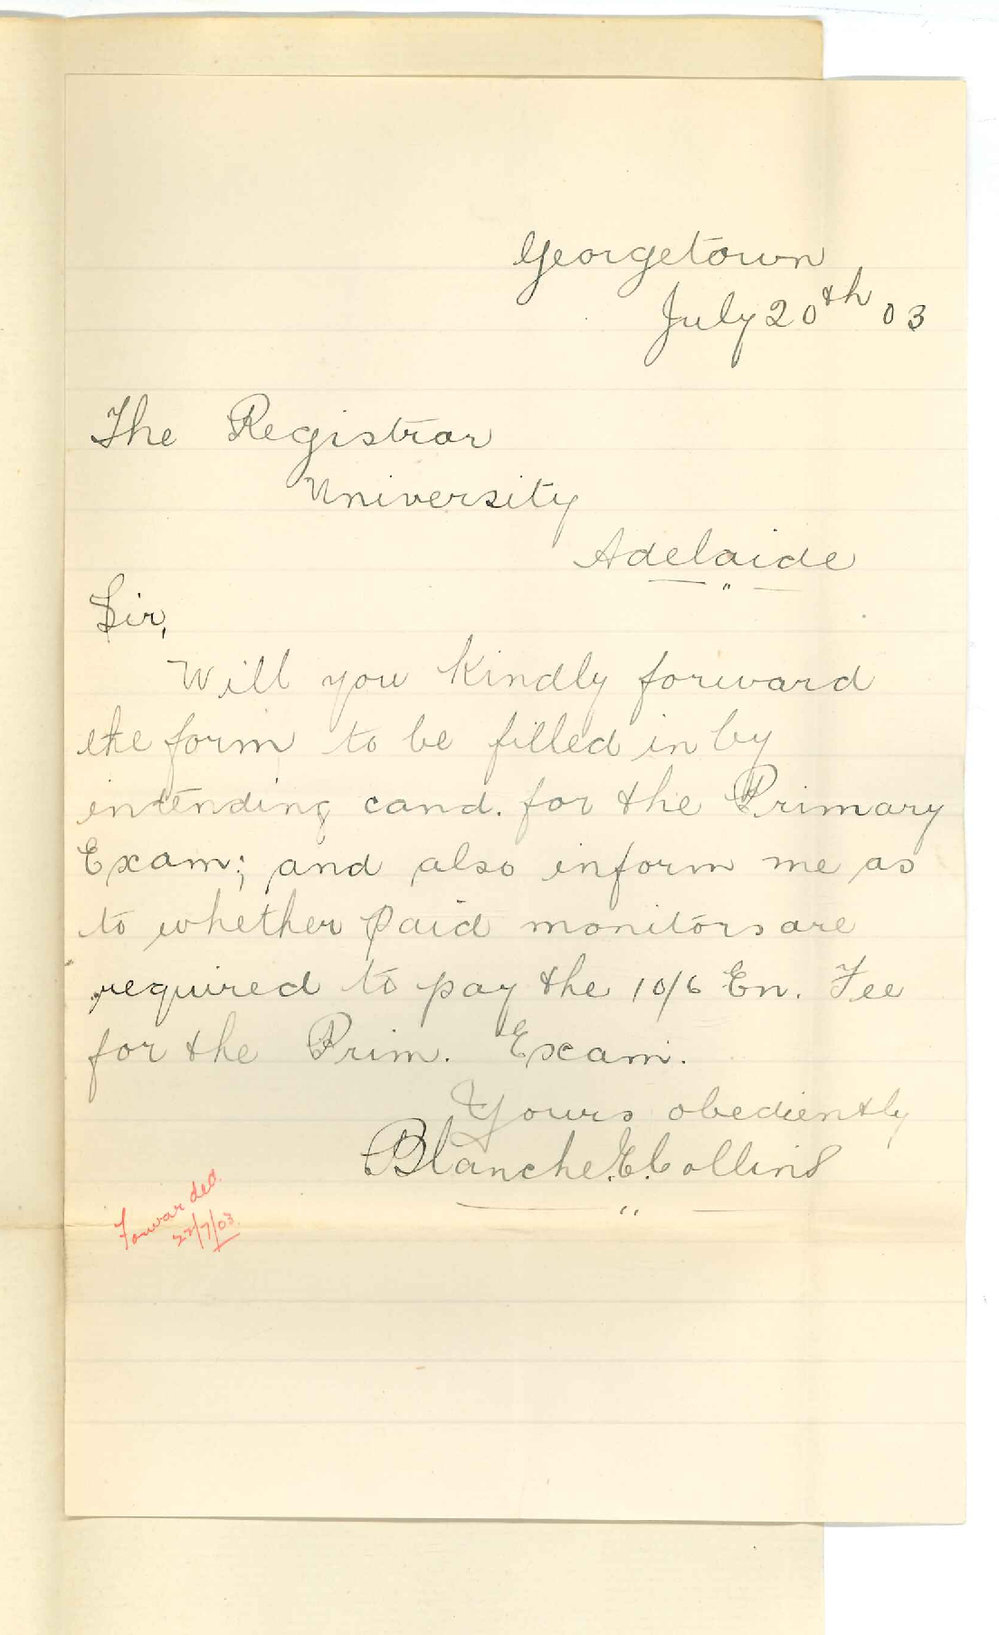 Georgetown
July 20th 03
The Registrar
University
Adelaide
Sir,
Will you kindly forward
the form to be filled in by
intending cand. for the Primary
Exam; and also inform me as
to whether paid monitors are
required to pay the 10/6 En. Fee
for the Prim. Exam.
Yours obediently
Blanche. E. Collins
Forwarded.
22/7/03